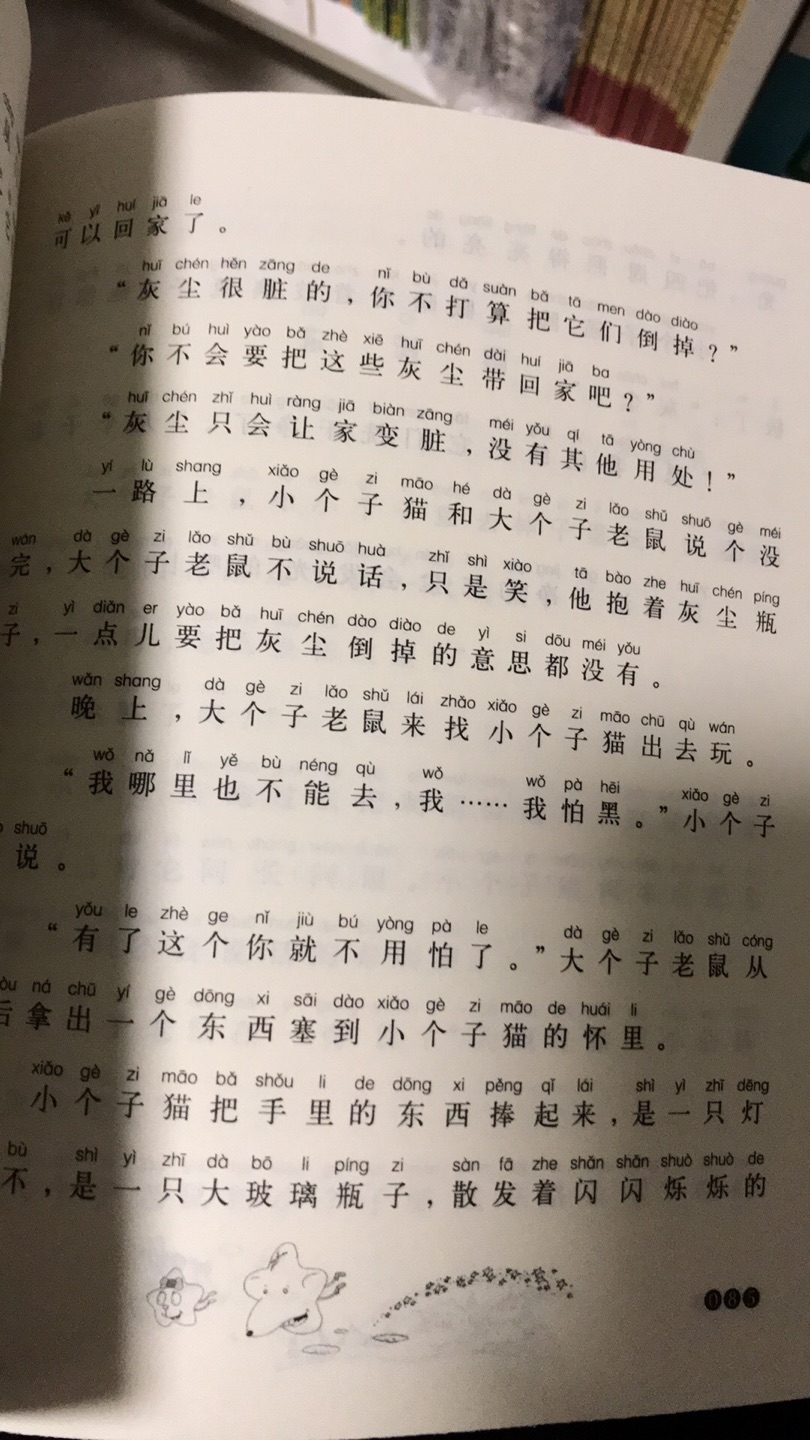 kě yǐ huí jiā le
可以回家了。
huī chén hěn zāng de nǐ bù dǎ suàn bǎ tā men dào diào
“灰尘很脏的，你不打算把它们倒掉？”
nǐ bú huì yào bǎ zhè xiē huī chén dài huí jiā ba
“你不会要把这些灰尘带回家吧？”
huī chén zhǐ huì ràng jiā biàn zāng méi yǒu qí tā yòng chù
“灰尘只会让家变脏，没有其他用处！”
yí lù shang xiǎo gè zi māo hé dà gè zi lǎo shǔ shuō gè méi
一路上，小个子猫和大个子老鼠说个没
wán dà gè zi lǎo shǔ bù shuō huà zhǐ shì xiào tā bào zhe huī chén píng
完，大个子老鼠不说话，只是笑，他抱着灰尘瓶
zi yì diǎn er yào bǎ huī chén dào diào de yì si dōu méi yǒu
子，一点儿要把灰尘倒掉的意思都没有。
wǎn shang dà gè zi lǎo shǔ lái zhǎo xiǎo gè zi māo chū qù wán
晚上，大个子老鼠来找小个子猫出去玩。
wǒ nǎ lǐ yě bù néng qù wǒ wǒ pà hēi xiǎo gè zi
“我哪里也不能去，我……我怕黑。”小个子
shuō
说。
yǒu le zhè ge nǐ jiù bú yòng pà le dà gè zi lǎo shǔ cóng
“有了这个你就不用怕了。”大个子老鼠从
ná chū yí gè dōng xi sāi dào xiǎo gè zi māo de huái li
后拿出一个东西塞到小个子猫的怀里。
xiǎo gè zi māo bǎ shǒu li de dōng xi pěng qǐ lái shì yì zhī dēng
小个子猫把手里的东西捧起来，是一只灯
bù shì yì zhī dà bō li píng zi sàn fā zhe shǎn shǎn shuò shuò de
不，是一只大玻璃瓶子，散发着闪闪烁烁的
085